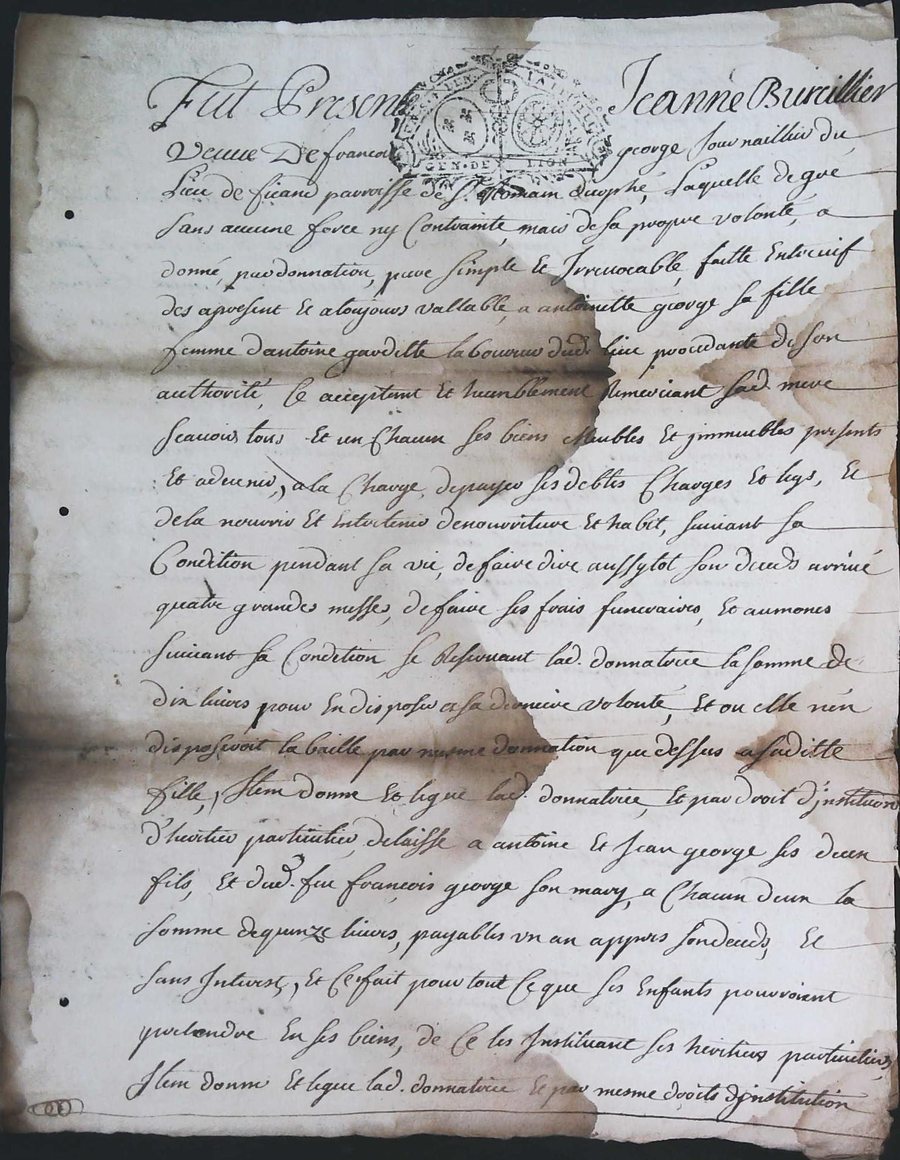 Fut Presente Jeanne Bureillier
Veuve De francois george Journaillier du
Lieu de ficand parroisse de St. Romain durphé, Laquelle de gré
sans aucune force ny Contrainte, mais de sa propre volonté, a
donné, par donnation, pure simple Et Irrevocable, faitte Entre vif
des apresent Et atoujours vallable, a antoinette george sa fille
femme dantoine gardette laboureur dud. lieu procedante de son
authorité, Ce acceptant Et humblement Remerciant sad. mere
scavoir tous Et un Chacun ses biens Meubles Et jmmeubles presents
Et advenir, a la Charge, de payer ses debtes Charges Et legs, Et
de la nourrir Et Entretenir de nourriture Et habit, suivant sa
Condition pendant sa vie, de faire dire aussytot son deceds arrivé
quatre grandes messes, de faire ses frais funeraires, Et aumones
suivant sa Condition, se Reservant lad. donnatrice la somme de
dix livres pour En disposer a sa derniere volonté, Et ou elle n'en
disposeroit la baille par mesme donnation que dessus a saditte
fille, Item donne Et legue lad. donnatrice, Et par droit d'jnstitution
d'heritier particulier, delaisse a antoine Et Jean george ses deux
fils, Et dud. feu francois george son mary, a Chacun deux la
somme de quinze livres, payables un an appres son deceds, Et
sans Interest, Et Ce fait pour tout Ce que ses Enfants pourroient
pretendre En ses biens, de Ce les Instituant ses heritiers particuliers,
Item donne Et legue lad. donnatrice Et par mesme droits d'jnstitution
GEN. DE LION